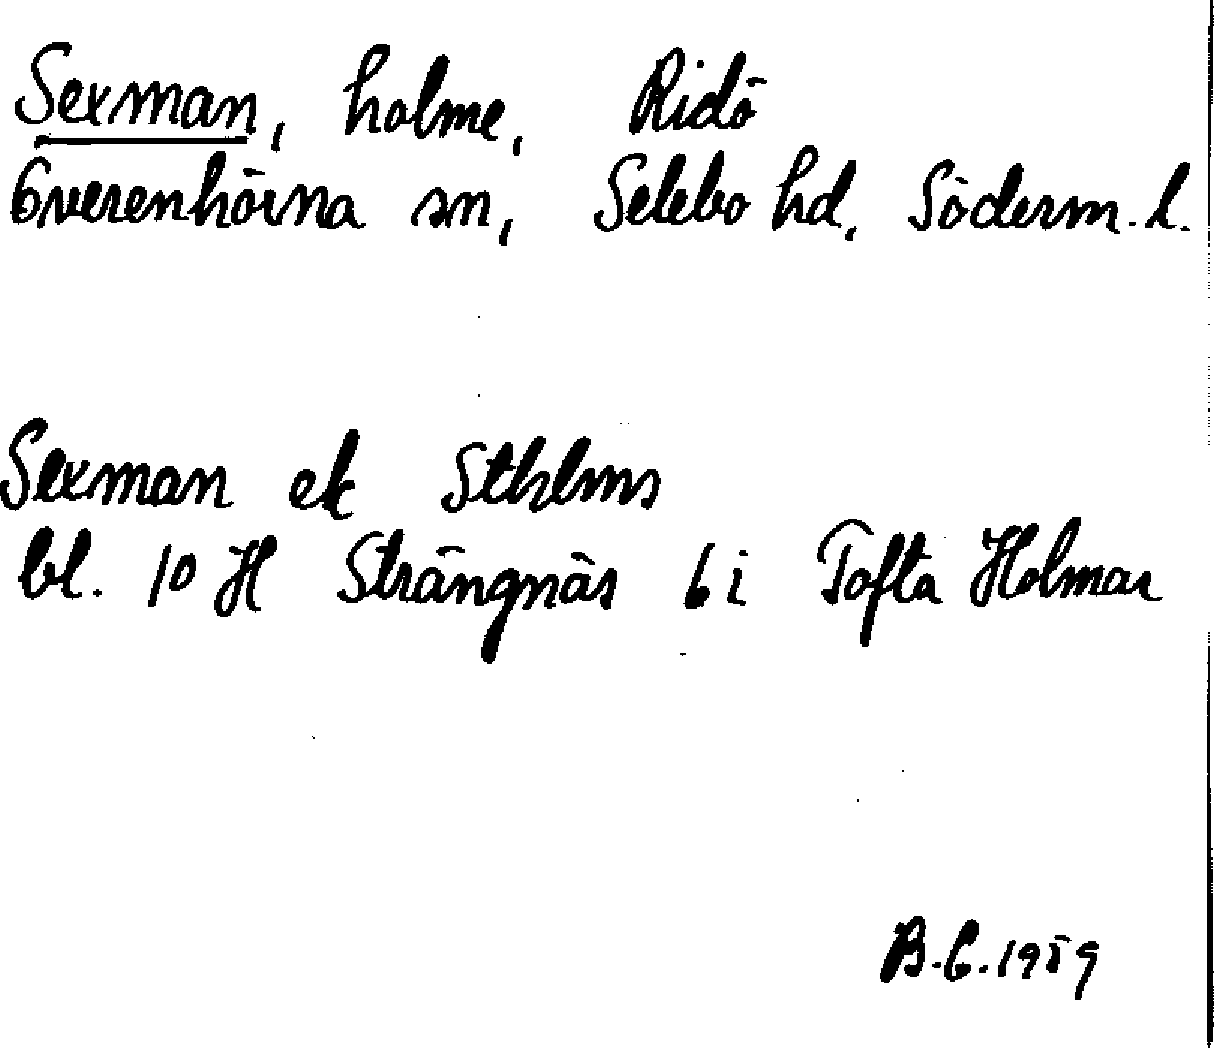 Sexman, holme, Ridö
Överenhörna sn, Selebo hd, Söderm. l.
Sexman ek Sthlms
bl. 10 H Strängnäs 6 i Tofta Holmar
B.C. 1959